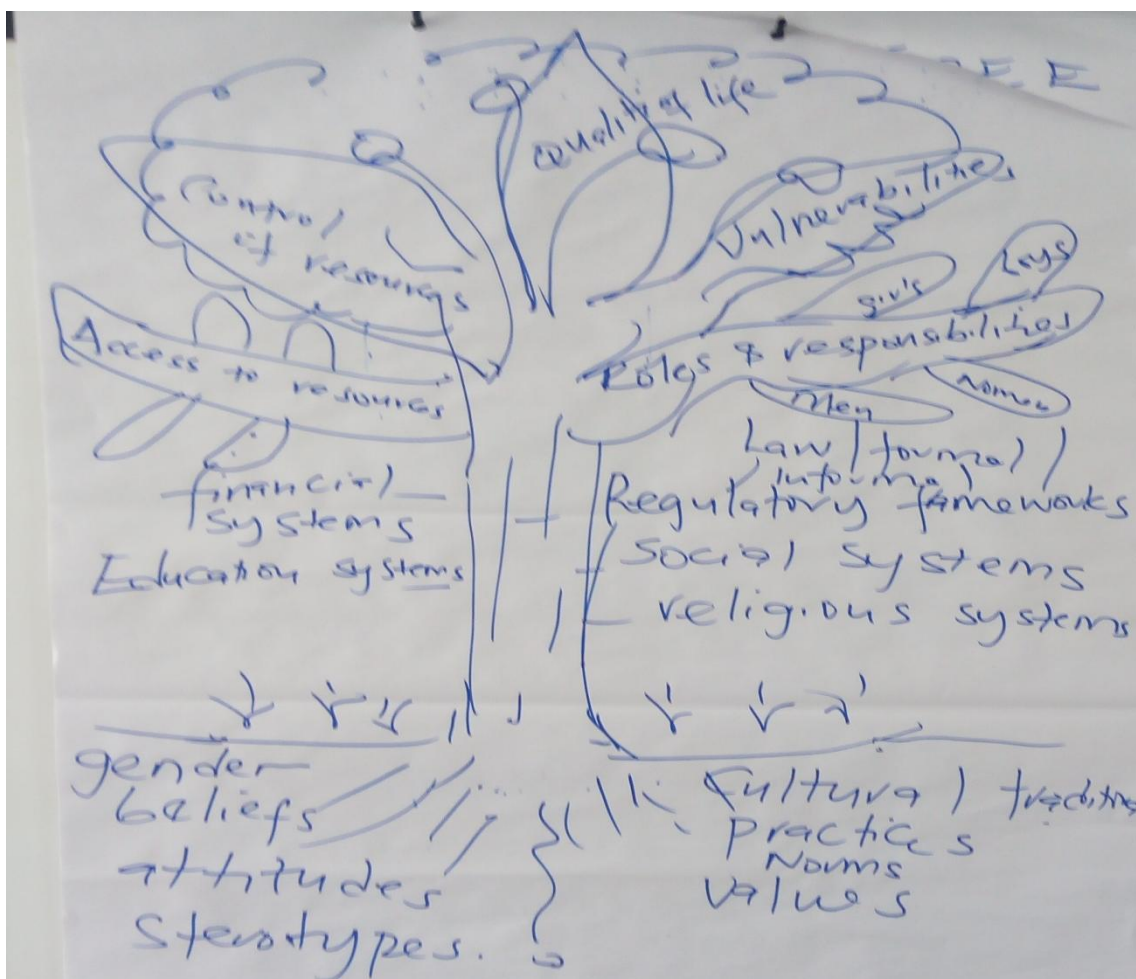 EE
Quality of life
Control
of resources
Vulnerabilities
girls
boys
Access to resources
Roles & responsibilities
Men
Women
financial
systems
Education systems
Law / formal /
informal
Regulatory frameworks
Social systems
religious systems
gender
beliefs
attitudes
Sterotypes.
Cultural /
practices
Norms
values